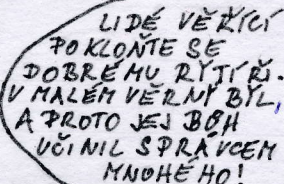 LIDÉ VĚŘÍCÍ
POKLOŇTE SE
DOBRÉMU RYTÍŘI.
V MALÉM VĚRNÝ BYL,
A PROTO JEJ BŮH
UČINIL SPRÁVCEM
MNOHÉHO!